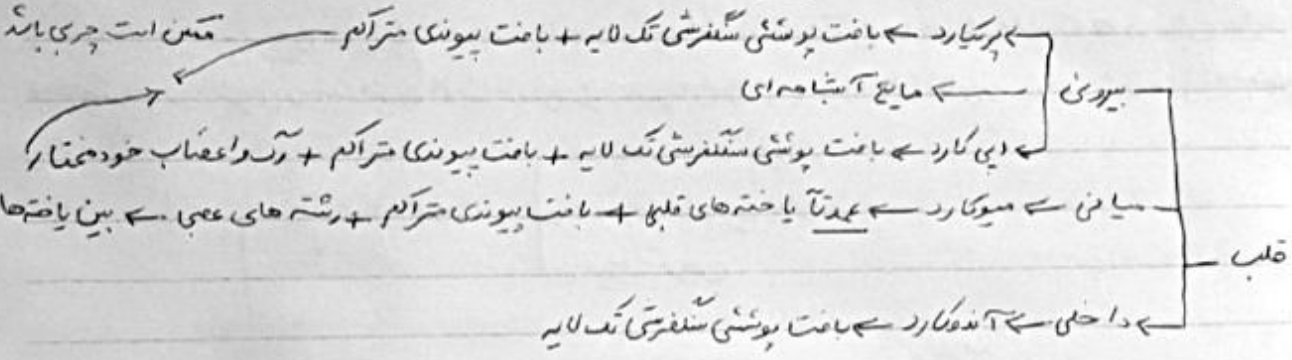 پریکارد ← بافت پوششی سنگفرشی تک لایه + بافت پیوندی متراکم ممکن است چربی باشد
بیرونی ← مایع آبشامه ای
اپی کارد ← بافت پوششی سنگفرشی تک لایه + بافت پیوندی متراکم + رگ و اعصاب خودمختار
میانی ← میوکارد ← عمدتاً یاخته های قلبی + بافت پیوندی متراکم + رشته های عصبی ← بین یاخته ها
قلب
داخلی ← آندوکارد ← بافت پوششی سنگفرشی تک لایه